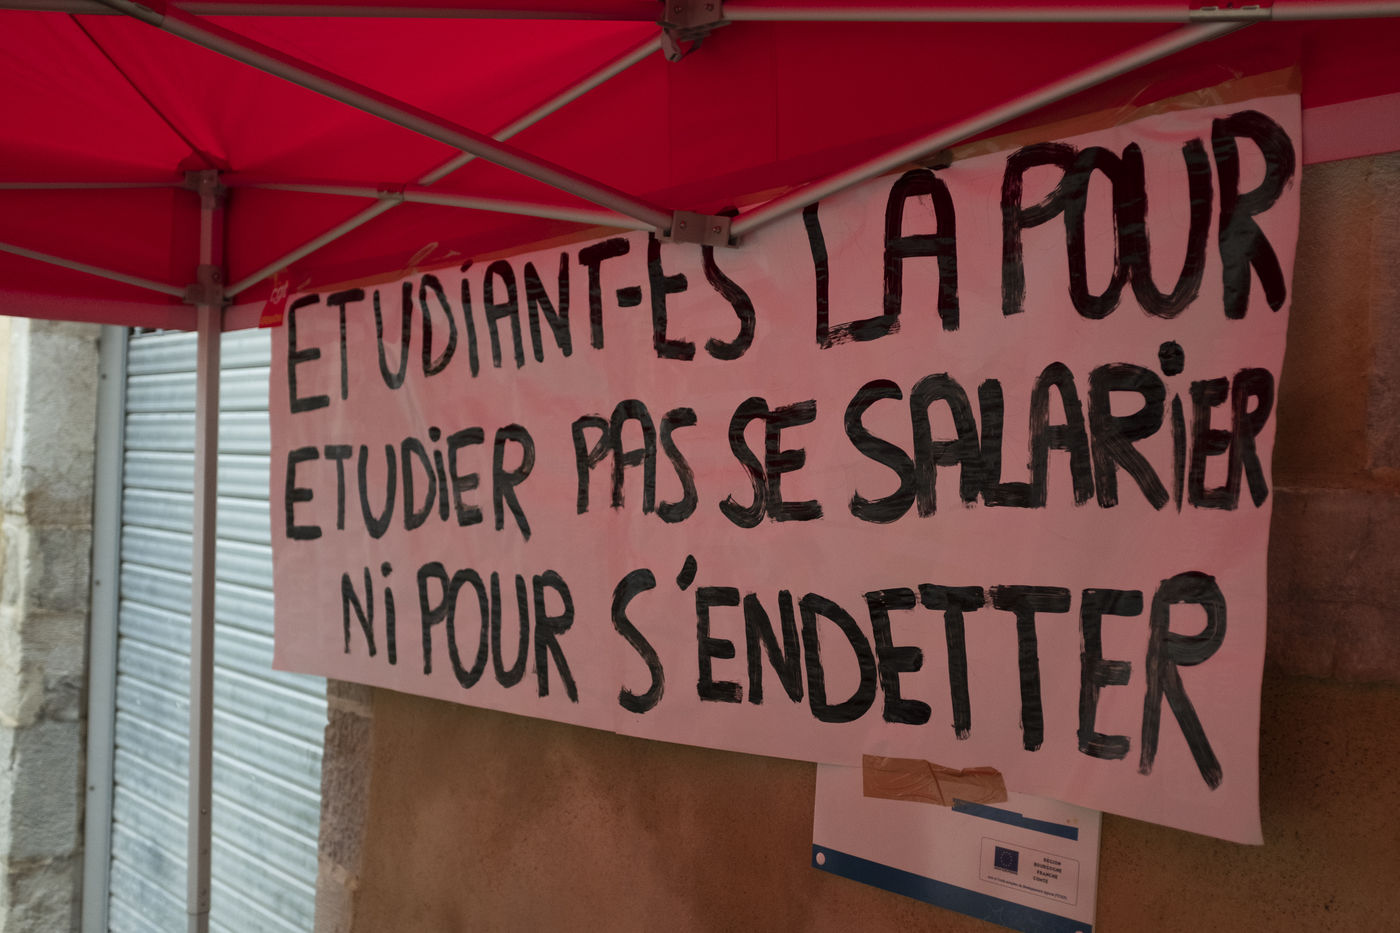 ETUDiANT-ES LÀ POUR
ETUDiER PAS SE SALARiER
Ni POUR S'ENDETTER
RÉGION
BOURGOGNE
FRANCHE
COMTÉ